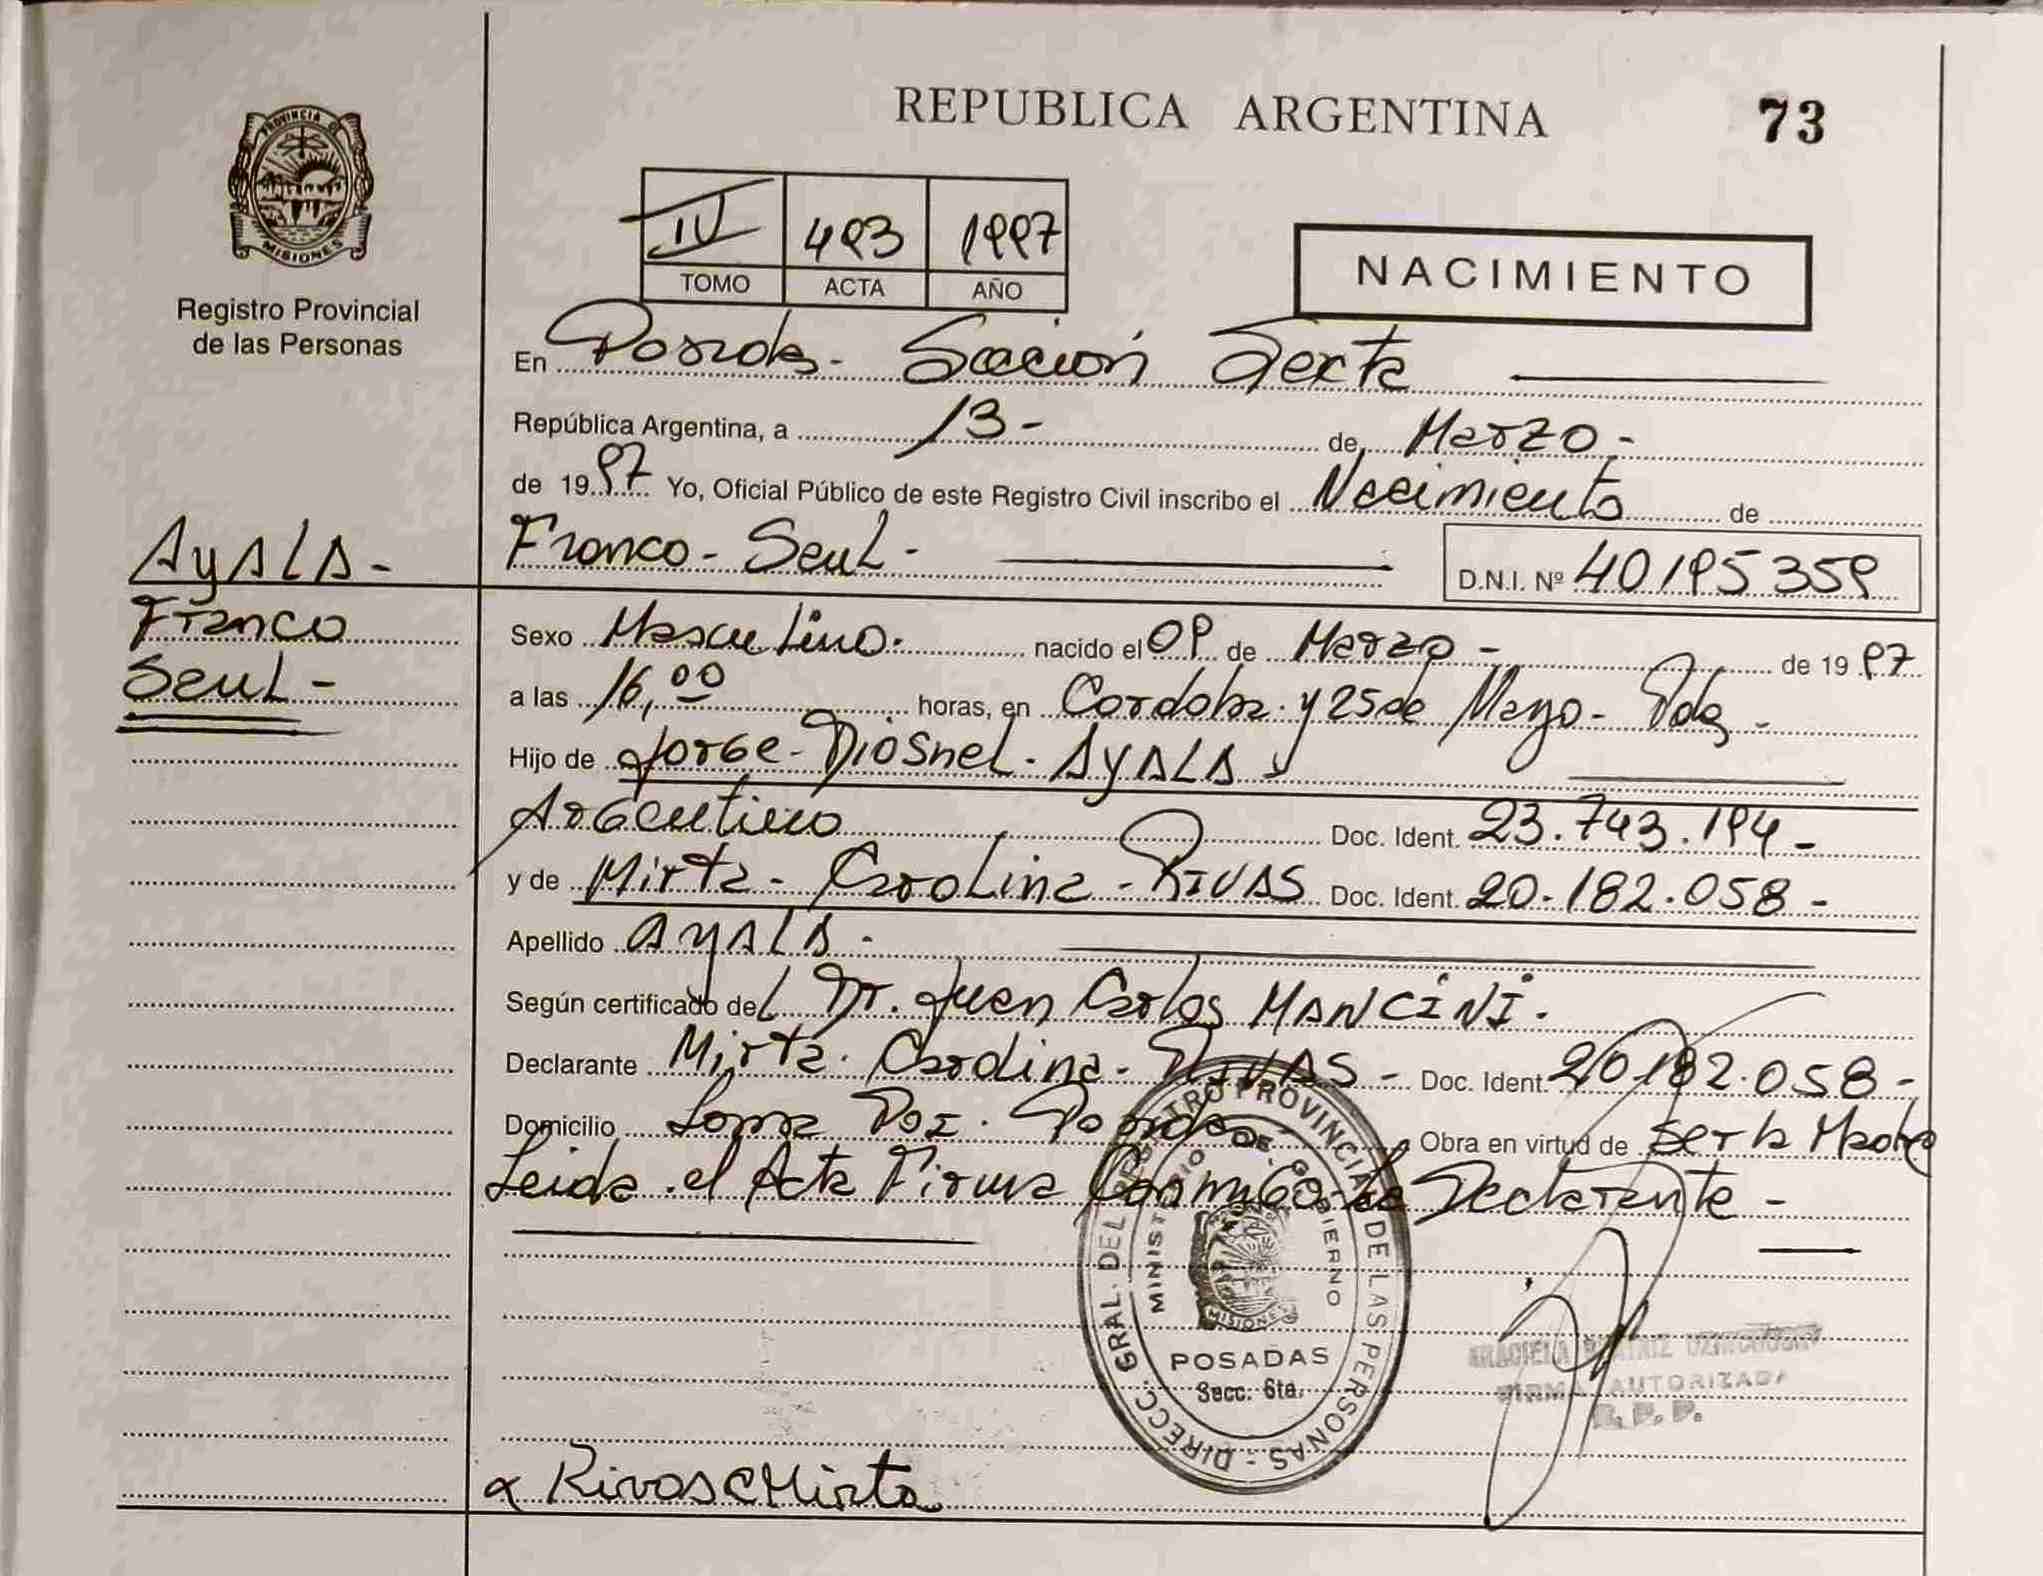 REPUBLICA ARGENTINA
73
PROVINCIA DE
MISIONES
Registro Provincial
de las Personas
IV 493 1997
TOMO ACTA AÑO
NACIMIENTO
En Posadas - Sección Sexta
República Argentina, a 13 - de Marzo -
de 1997 Yo, Oficial Público de este Registro Civil inscribo el Nacimiento de
Franco - Seul - D.N.I. Nº 40195359
AyALA -
Franco
Seul -
Sexo Masculino. nacido el 09 de Marzo - de 1997
a las 16,00 horas, en Cordoba y 25 de Mayo - Pdas -
Hijo de Jorge - Diosnel - AyALA
Argentino Doc. Ident. 23.743.194 -
y de Mirta - Carolina - RIVAS Doc. Ident. 20.182.058 -
Apellido AyALA -
Según certificado del Dr. Juan Carlos MANCINI.
Declarante Mirta - Carolina - RIVAS - Doc. Ident. 20.182.058 -
Domicilio Loma Poi - Posadas - Obra en virtud de ser la Madre
Leida el Acta Firma Conmigo la Declarante -
DIRECC. GRAL. DEL REGISTRO PROVINCIAL DE LAS PERSONAS -
MINISTERIO DE GOBIERNO
MISIONES
POSADAS
Secc. 6ta.
FIRMA AUTORIZADA
R. P. P.
Rivas C Mirta